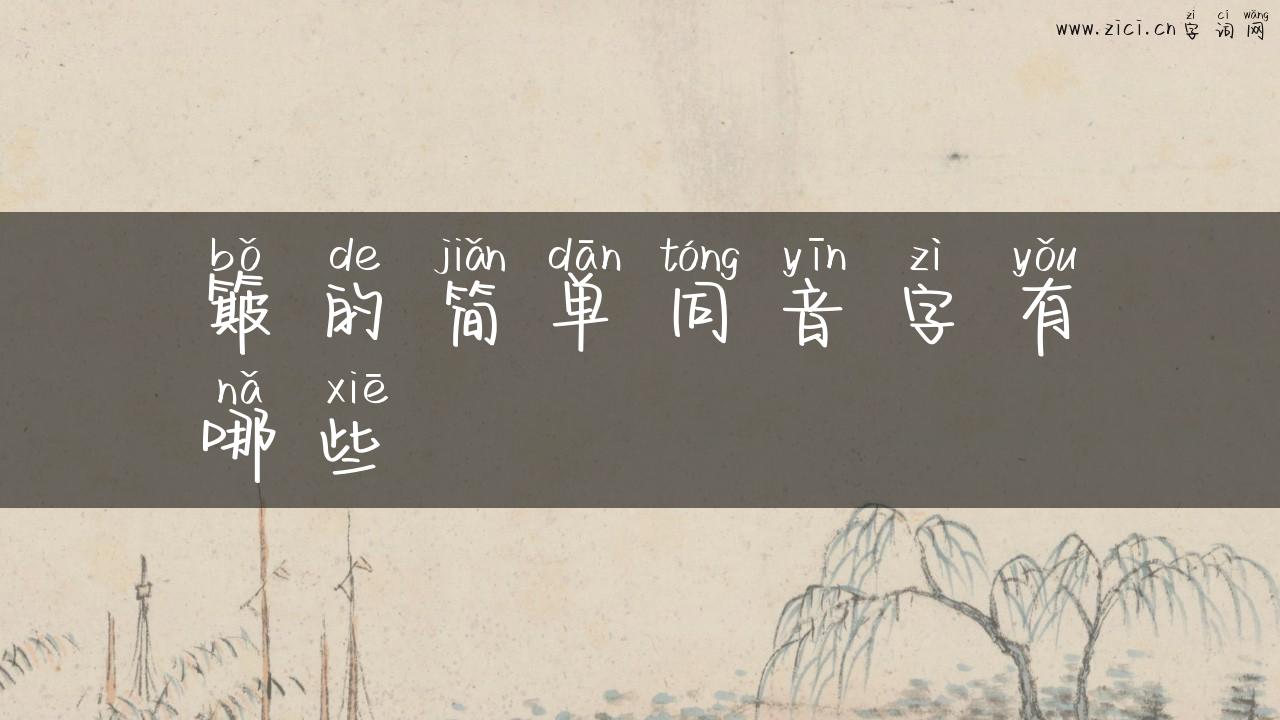 www.zici.cn 字词网
zì cí wǎng
bǒ de jiǎn dān tóng yīn zì yǒu
簸的简单同音字有
nǎ xiē
哪些